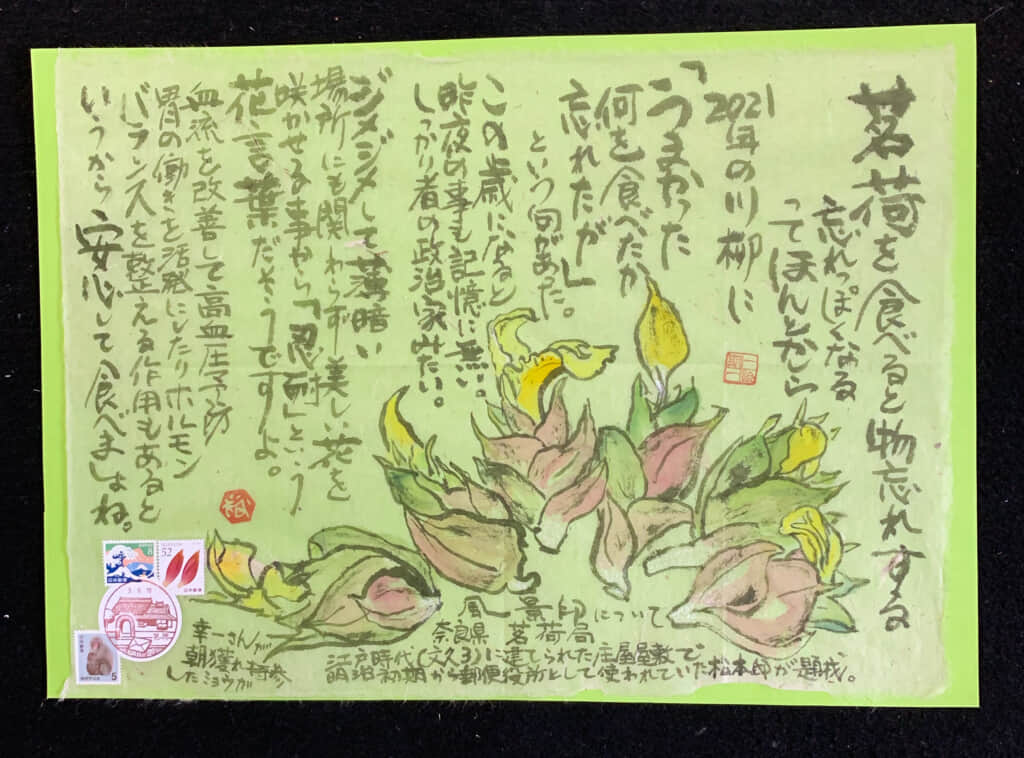 茗荷を食べると物忘れする
忘れっぽくなる
ってほんとかしら
2021年の川柳に
「うまかった
何を食べたか
忘れたが」
という句があった。
この歳になると
昨夜の事も記憶に無い!
しっかり者の政治家みたい。
ジメジメして薄暗い
場所にも関わらず美しい花を
咲かせる事から「忍耐」という
花言葉だそうですよ。
血流を改善して高血圧予防
胃の働きを活発にしたりホルモン
バランスを整える作用もあると
いうから安心して食べましょね。
風景印について
奈良県 茗荷局
江戸時代(文久3)に建てられた庄屋屋敷で
明治初期から郵便役所として使われていた松本邸が題材。
幸一さんが
朝獲れ持参
したミョウガ
8
52
日本郵便
日本郵便
3.9.10
5